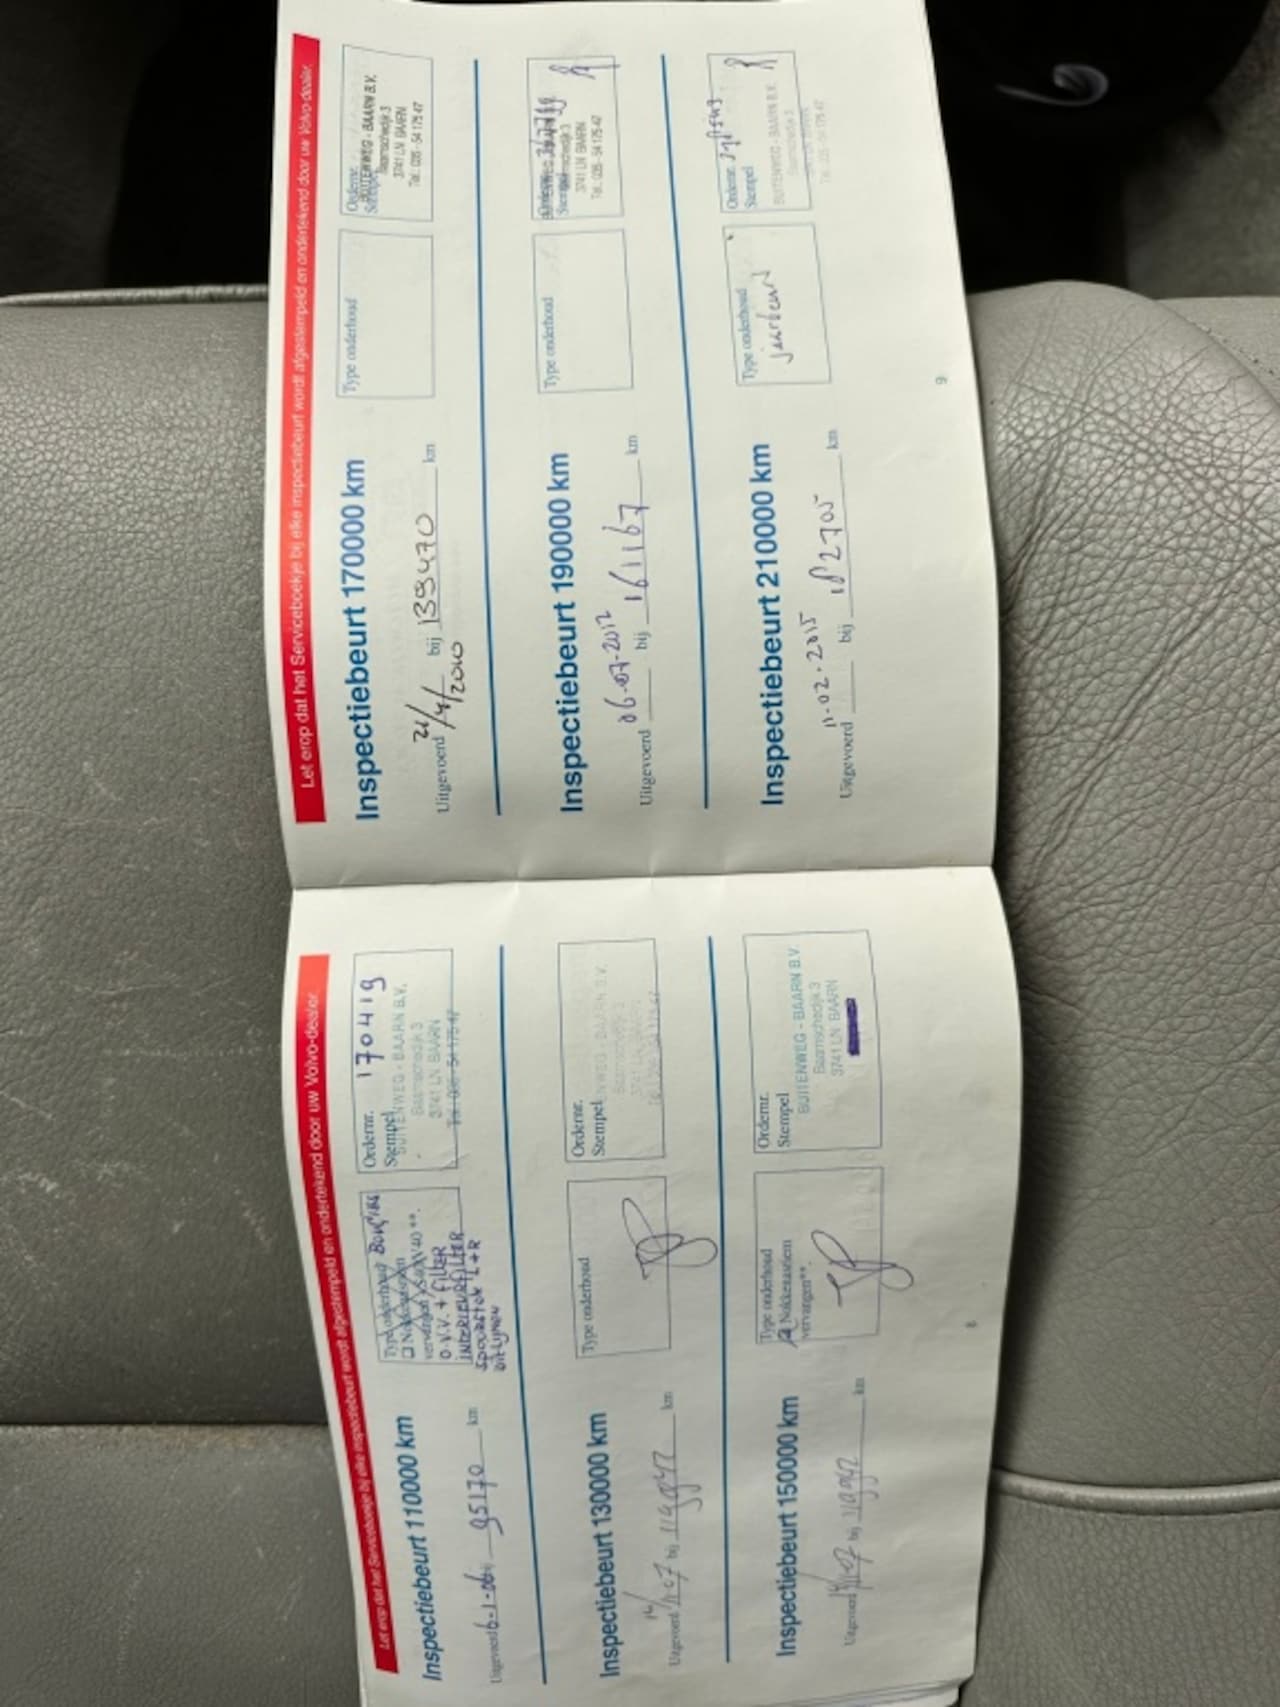 Let erop dat het Serviceboekje bij elke inspectiebeurt wordt afgestempeld en ondertekend door uw Volvo-dealer.
Inspectiebeurt 110000 km
Uitgevoerd 6-1-06 bij 95170 km
Type onderhoud BOUGIES
Nokkenasriem
vervangen S40/V40**.
O.V.V. + FILTER
INTERIEURFILTER
SPOORSTOK L+R
UITLIJNEN
Ordernr. 170419
Stempel
BUITENWEG - BAARN B.V.
Baarnschedijk 3
3741 LN BAARN
Tel. 035-54 175 47
Inspectiebeurt 130000 km
Uitgevoerd bij km
Type onderhoud
Ordernr.
Stempel
NWEG - BAARN B.V.
Inspectiebeurt 150000 km
Uitgevoerd bij km
Type onderhoud
Nokkenasriem
vervangen**.
Ordernr.
Stempel
BUITENWEG - BAARN B.V.
Baarnschedijk 3
3741 LN BAARN
8
Let erop dat het Serviceboekje bij elke inspectiebeurt wordt afgestempeld en ondertekend door uw Volvo-dealer.
Inspectiebeurt 170000 km
Uitgevoerd 21/4/2010 bij 139470 km
Type onderhoud
Ordernr.
Stempel
BUITENWEG - BAARN B.V.
Baarnschedijk 3
3741 LN BAARN
Tel.: 035 - 54 175 47
Inspectiebeurt 190000 km
Uitgevoerd 06-07-2012 bij 161167 km
Type onderhoud
Ordernr.
Stempel
Baarnschedijk 3
3741 LN BAARN
Tel.: 035 - 54 175 47
Inspectiebeurt 210000 km
Uitgevoerd 11-02-2015 bij 182705 km
Type onderhoud
jaarbeurt
Ordernr.
Stempel
BUITENWEG - BAARN B.V.
Baarnschedijk 3
9